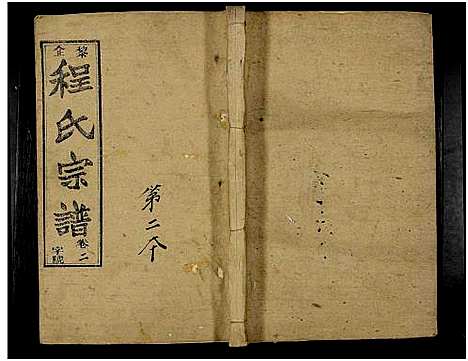 黎企
程氏宗譜
卷二
字號
第二个